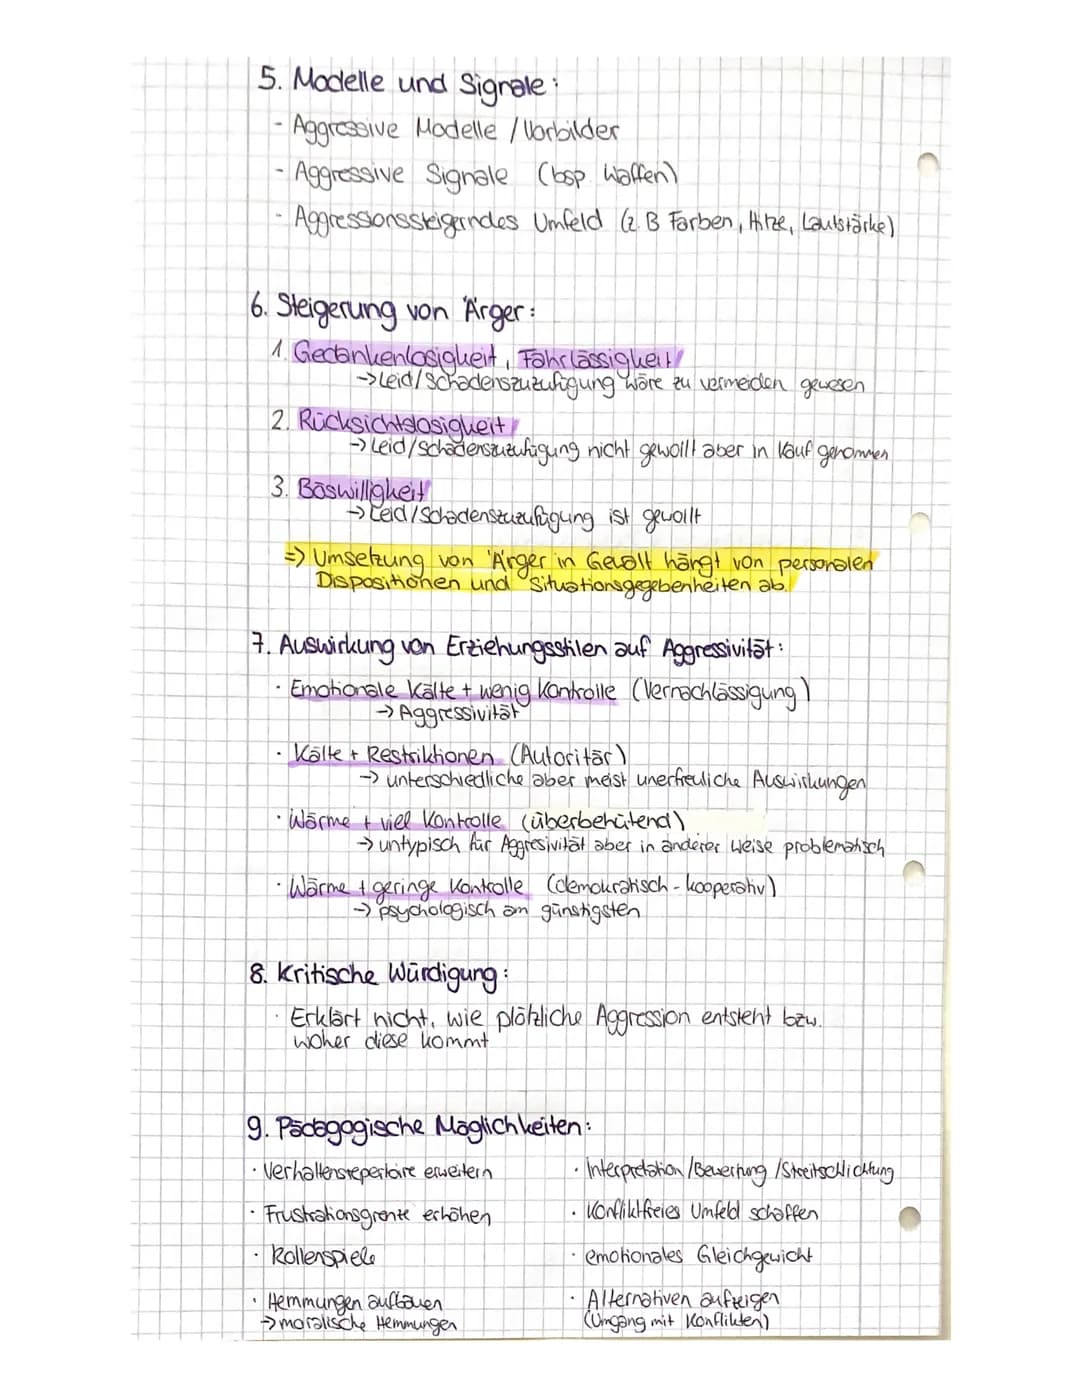 5. Modelle und Signale:
- Aggressive Modelle / Vorbilder
- Aggressive Signale (bsp. Waffen)
- Aggressionssteigerndes Umfeld (z.B Farben, Hitze, Lautstärke)
6. Steigerung von Ärger:
1. Gedankenlosigkeit, Fahrlässigkeit
-> Leid/Schadenszuzufügung wäre zu vermeiden gewesen
2. Rücksichtslosigkeit
-> Leid/Schadenszuzufügung nicht gewollt aber in Kauf genommen
3. Böswilligkeit
-> Leid/Schadenszuzufügung ist gewollt
=> Umsetzung von Ärger in Gewalt hängt von personalen
Dispositionen und Situationsgegebenheiten ab.
7. Auswirkung von Erziehungsstilen auf Aggressivität:
· Emotionale Kälte + wenig Kontrolle (Vernachlässigung)
-> Aggressivität
· Kälte + Restriktionen (Autoritär)
-> unterschiedliche aber meist unerfreuliche Auswirkungen
· Wärme + viel Kontrolle (überbehütend)
-> untypisch für Aggresivität aber in anderer Weise problematisch
· Wärme + geringe Kontrolle (demokratisch - kooperativ)
-> psychologisch am günstigsten
8. Kritische Würdigung:
· Erklärt nicht, wie plötzliche Aggression entsteht bzw.
woher diese kommt
9. Pädagogische Möglichkeiten:
· Verhaltensrepertoire erweitern
· Frustrationsgrenze erhöhen
· Rollenspiele
· Hemmungen aufbauen
-> moralische Hemmungen
· Interpretation /Bewertung /Streitschlichtung
· Konfliktfreies Umfeld schaffen
· emotionales Gleichgewicht
· Alternativen aufzeigen
(Umgang mit Konflikten)